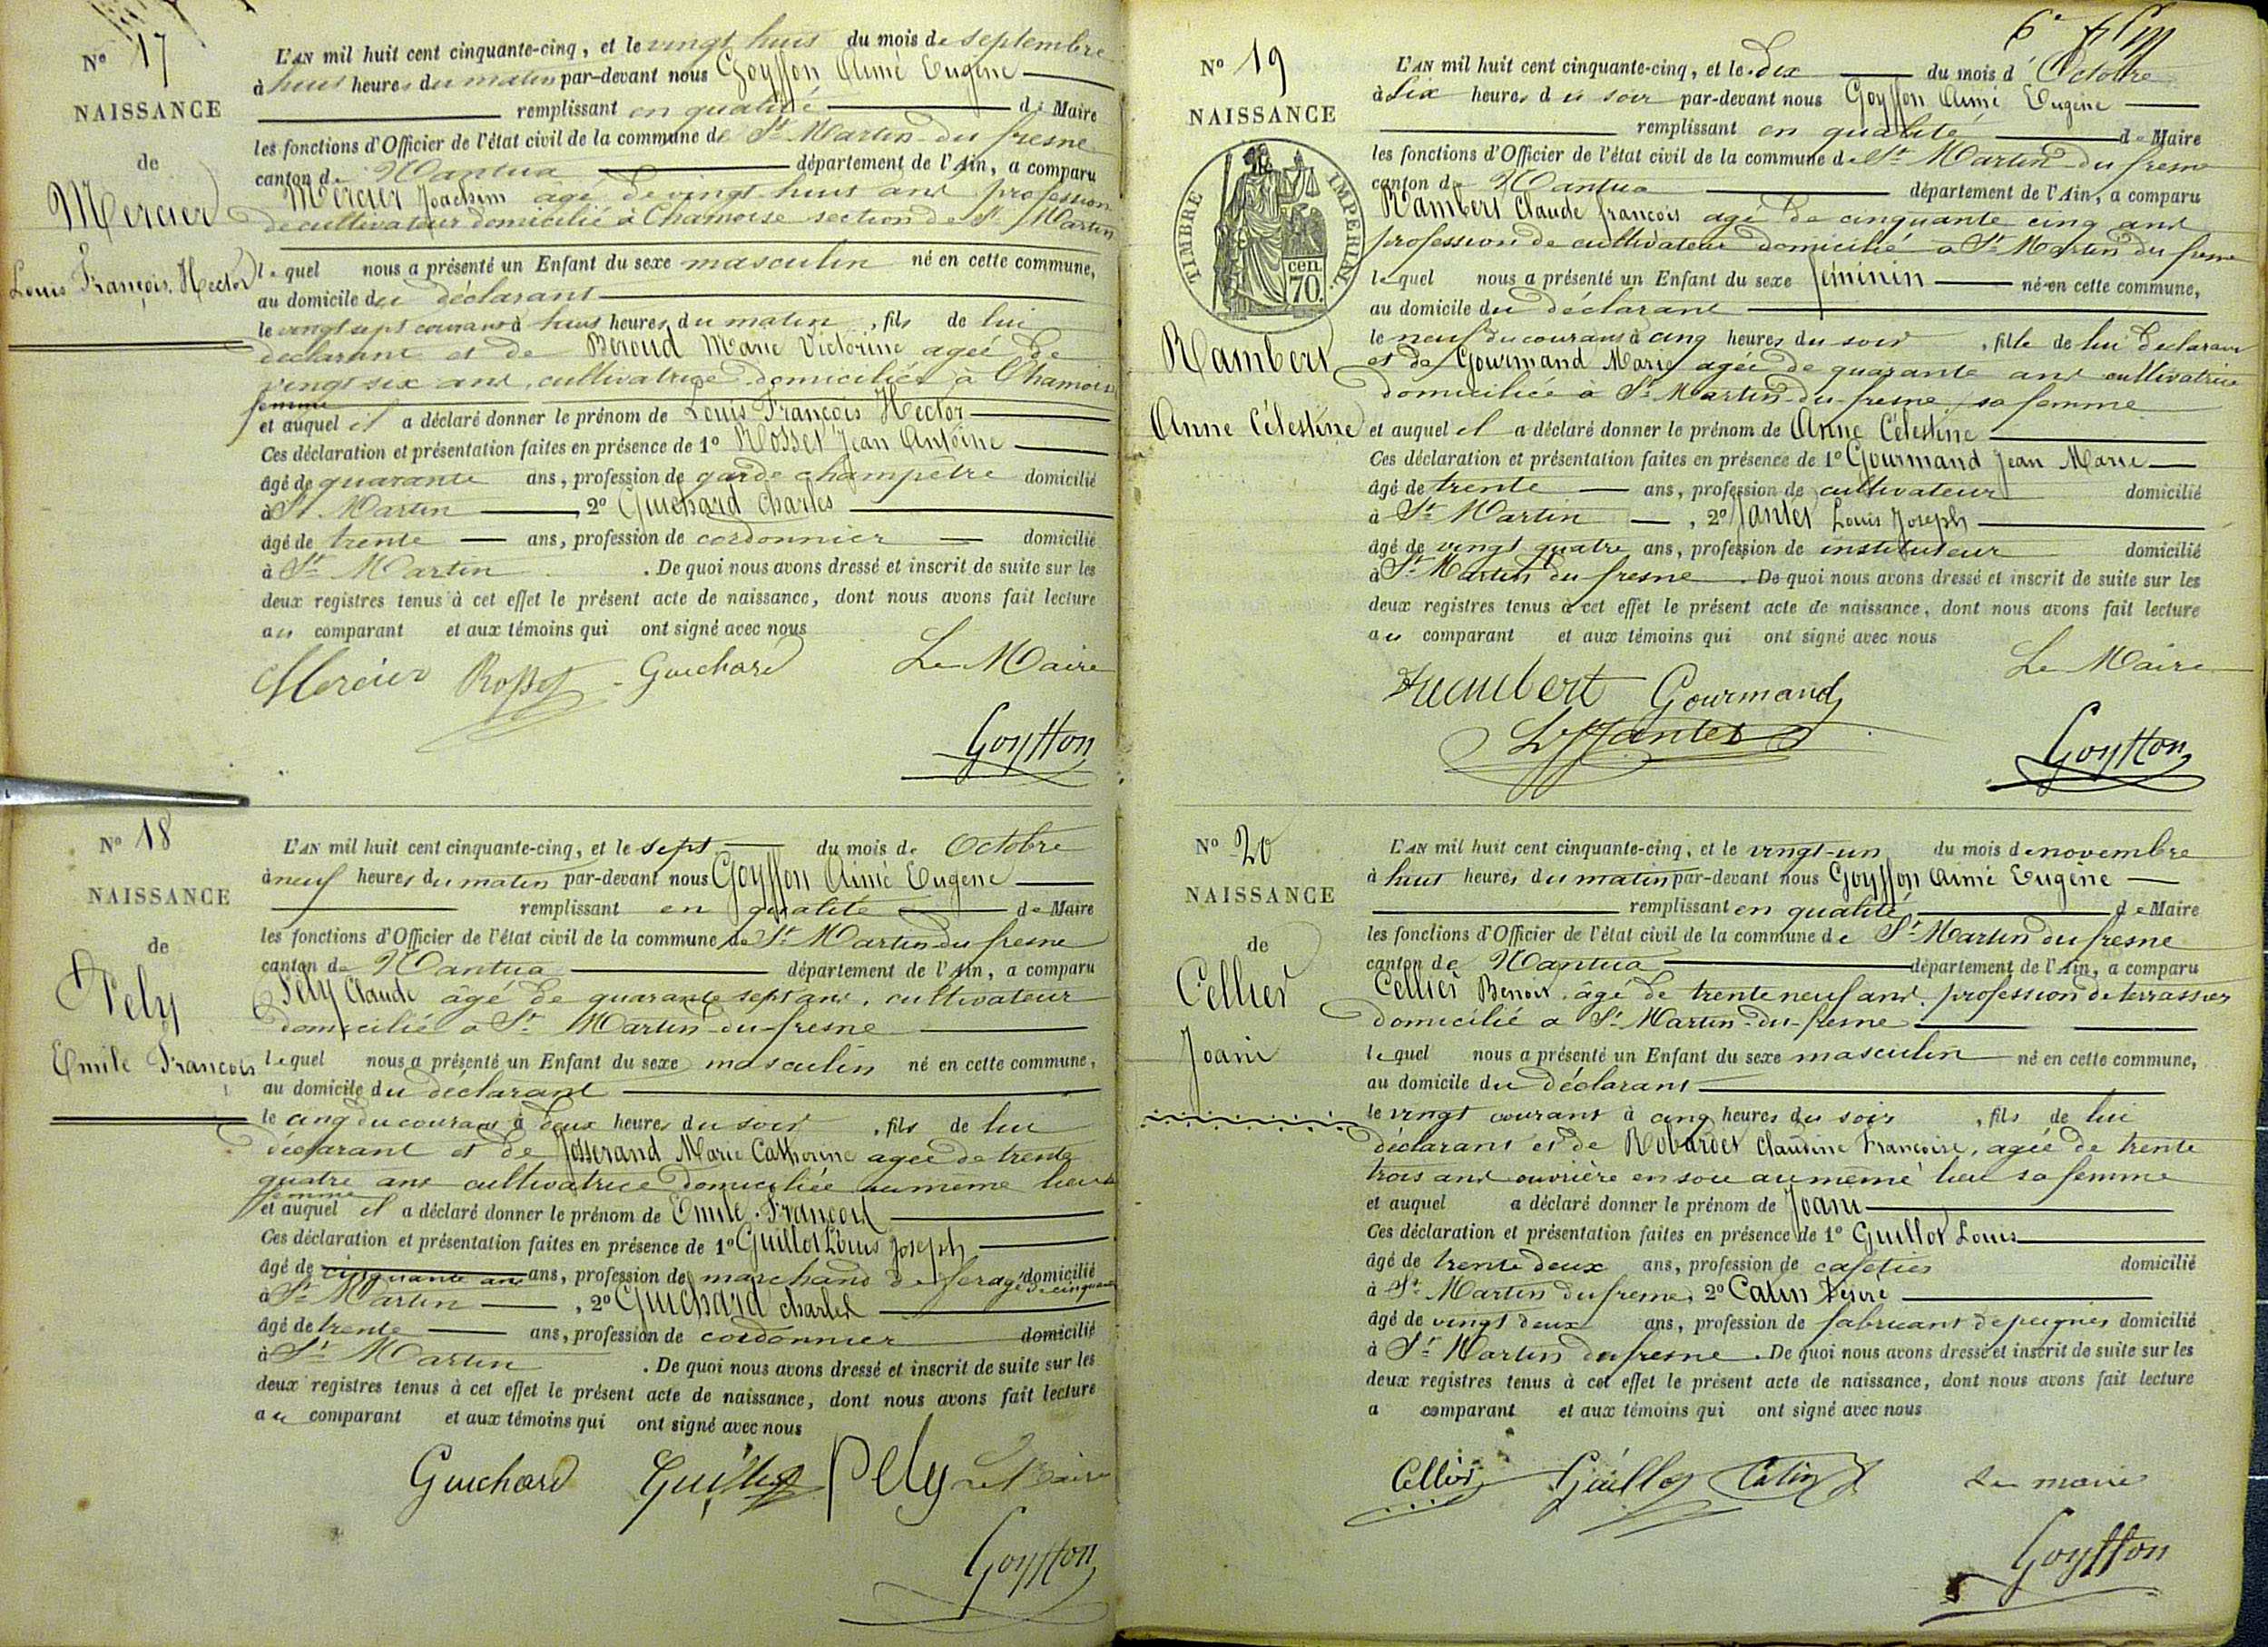 N° 17
NAISSANCE
de
Mercier
Louis François Hector
L'AN mil huit cent cinquante-cinq, et le vingt huit du mois de septembre
à huit heures du matin par-devant nous Goyffon Aimé Eugène
remplissant en qualité de Maire
les fonctions d'Officier de l'état civil de la commune de St Martin du fresne
canton de Nantua département de l'Ain, a comparu
Mercier Joachim agé de vingt huit ans profession
de cultivateur domicilié à Chamoise section de St Martin
lequel nous a présenté un Enfant du sexe masculin né en cette commune,
au domicile du déclarant
le vingt sept courant à huit heures du matin, fils de lui
déclarant et de Beroud Marie Victorine agée de
vingt six ans, cultivatrice domiciliée à Chamoise
femme
et auquel il a déclaré donner le prénom de Louis François Hector
Ces déclaration et présentation faites en présence de 1° Rosset Jean Antoine
âgé de quarante ans, profession de garde champêtre domicilié
à St Martin, 2° Guichard Charles
âgé de trente ans, profession de cordonnier domicilié
à St Martin. De quoi nous avons dressé et inscrit de suite sur les
deux registres tenus à cet effet le présent acte de naissance, dont nous avons fait lecture
au comparant et aux témoins qui ont signé avec nous
Mercier Rosset Guichard Le Maire
Goyffon
N° 18
NAISSANCE
de
Pely
Emile François
L'AN mil huit cent cinquante-cinq, et le sept du mois de Octobre
à neuf heures du matin par-devant nous Goyffon Aimé Eugène
remplissant en qualité de Maire
les fonctions d'Officier de l'état civil de la commune de St Martin du fresne
canton de Nantua département de l'Ain, a comparu
Pely Claude âgé de quarante sept ans, cultivateur
domicilié à St Martin-du-fresne
lequel nous a présenté un Enfant du sexe masculin né en cette commune,
au domicile du déclarant
le cinq du courant à deux heures du soir, fils de lui
déclarant et de Josserand Marie Catherine agée de trente
quatre ans cultivatrice domiciliée au meme lieu sa
femme
et auquel il a déclaré donner le prénom de Emile François
Ces déclaration et présentation faites en présence de 1° Guillot Louis Joseph
âgé de cinquante ans ans, profession de marchand de fer agé de cinquante domicilié
à St Martin, 2° Guichard Charles
âgé de trente ans, profession de cordonnier domicilié
à St Martin. De quoi nous avons dressé et inscrit de suite sur les
deux registres tenus à cet effet le présent acte de naissance, dont nous avons fait lecture
au comparant et aux témoins qui ont signé avec nous
Guichard Guillot Pely Le Maire
Goyffon
6e
N° 19
NAISSANCE
TIMBRE IMPÉRIAL
70 cen.
Rambert
Anne Célestine
L'AN mil huit cent cinquante-cinq, et le dix du mois d'Octobre
à six heures du soir par-devant nous Goyffon Aimé Eugène
remplissant en qualité de Maire
les fonctions d'Officier de l'état civil de la commune de St Martin du fresne
canton de Nantua département de l'Ain, a comparu
Rambert Claude françois agé de cinquante cinq ans
profession de cultivateur domicilié à St Martin du fresne
lequel nous a présenté un Enfant du sexe féminin né en cette commune,
au domicile du déclarant
le neuf du courant à cinq heures du soir, fille de lui déclarant
et de Gourmand Marie agée de quarante ans cultivatrice
domiciliée à St Martin-du-fresne, sa femme
et auquel il a déclaré donner le prénom de Anne Célestine
Ces déclaration et présentation faites en présence de 1° Gourmand Jean Marie
âgé de trente ans, profession de cultivateur domicilié
à St Martin, 2° Jantet Louis Joseph
âgé de vingt quatre ans, profession de instituteur domicilié
à St Martin du fresne. De quoi nous avons dressé et inscrit de suite sur les
deux registres tenus à cet effet le présent acte de naissance, dont nous avons fait lecture
au comparant et aux témoins qui ont signé avec nous
Gourmand Le Maire
L J Jantet
Goyffon
N° 20
NAISSANCE
de
Cellier
Joani
L'AN mil huit cent cinquante-cinq, et le vingt-un du mois de novembre
à huit heures du matin par-devant nous Goyffon Aimé Eugène
remplissant en qualité de Maire
les fonctions d'Officier de l'état civil de la commune de St Martin du fresne
canton de Nantua département de l'Ain, a comparu
Cellier Benoit, âgé de trente neuf ans, profession de terrassier
domicilié à St Martin-du-fresne
lequel nous a présenté un Enfant du sexe masculin né en cette commune,
au domicile du déclarant
le vingt courant à cinq heures du soir, fils de lui
déclarant et de Robardet Claudine Françoise, agée de trente
trois ans ouvrière en soie au même lieu sa femme
et auquel a déclaré donner le prénom de Joani
Ces déclaration et présentation faites en présence de 1° Guillot Louis
âgé de trente deux ans, profession de cafetier domicilié
à St Martin du fresne, 2° Catin Désiré
âgé de vingt deux ans, profession de fabricant de peignes domicilié
à St Martin du fresne. De quoi nous avons dressé et inscrit de suite sur les
deux registres tenus à cet effet le présent acte de naissance, dont nous avons fait lecture
a comparant et aux témoins qui ont signé avec nous
Cellier Guillot Catin Le maire
Goyffon